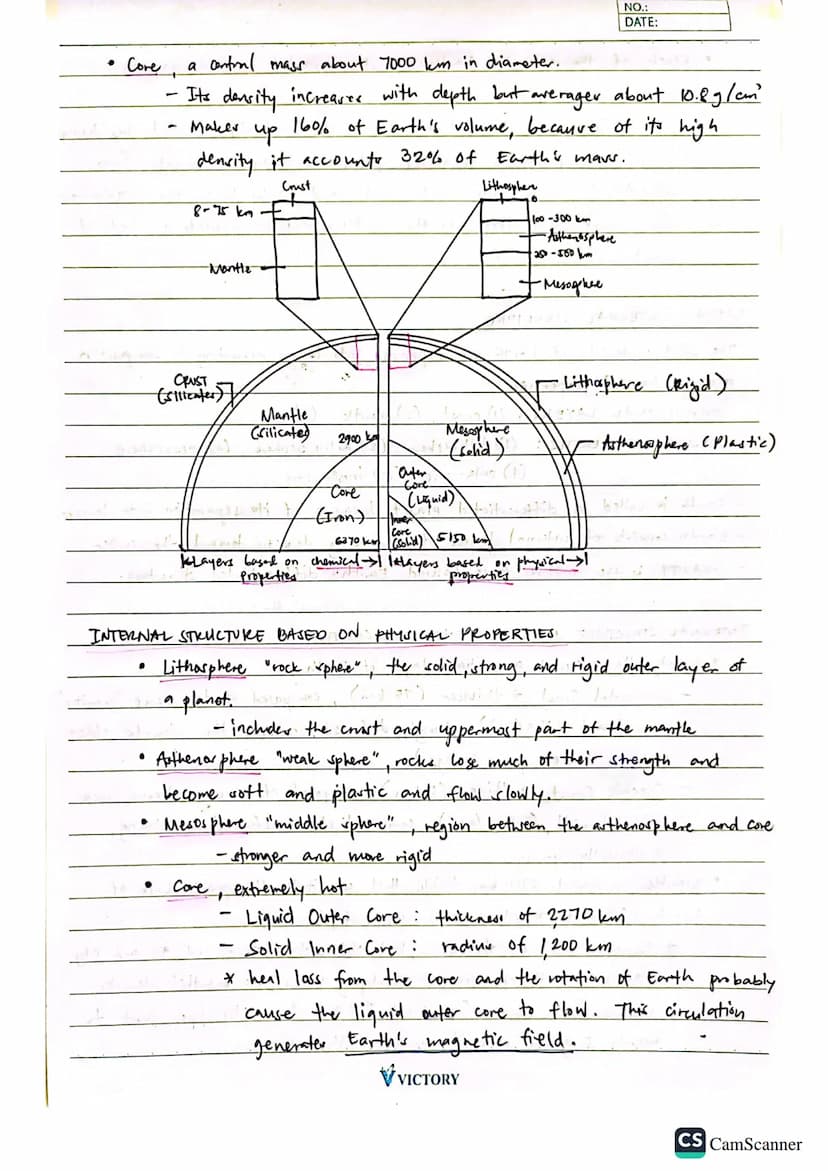 NO.:
DATE:
• Core, a central mass about 7000 km in diameter.
- Its density increases with depth but averages about 10.8 g/cm³
- Makes up 16% of Earth's volume, because of its high
density it accounts 32% of Earth's mass.
Crust
8-75 km
Mantle
Lithosphere
0
100-300 km
Asthenosphere
250-550 km
Mesosphere
CRUST
(silicates)
Mantle
(silicates)
2900 km
Core
(Iron)
6370 km
Lithosphere (Rigid)
Asthenosphere (Plastic)
Mesosphere
(solid)
Outer
Core
(Liquid)
Inner
Core
(solid)
5150 km
Layers based on chemical
properties
Layers based on physical
properties
INTERNAL STRUCTURE BASED ON PHYSICAL PROPERTIES
• Lithosphere "rock sphere", the solid, strong, and rigid outer layer of
a planet.
- includes the crust and uppermost part of the mantle
• Asthenosphere "weak sphere", rocks lose much of their strength and
become soft and plastic and flow slowly.
• Mesosphere "middle sphere", region between the asthenosphere and core
- stronger and more rigid
• Core, extremely hot
- Liquid Outer Core : thickness of 2,270 km
- Solid Inner Core : radius of 1,200 km
* heal loss from the core and the rotation of Earth probably
cause the liquid outer core to flow. This circulation
generates Earth's magnetic field.
VICTORY
CS CamScanner